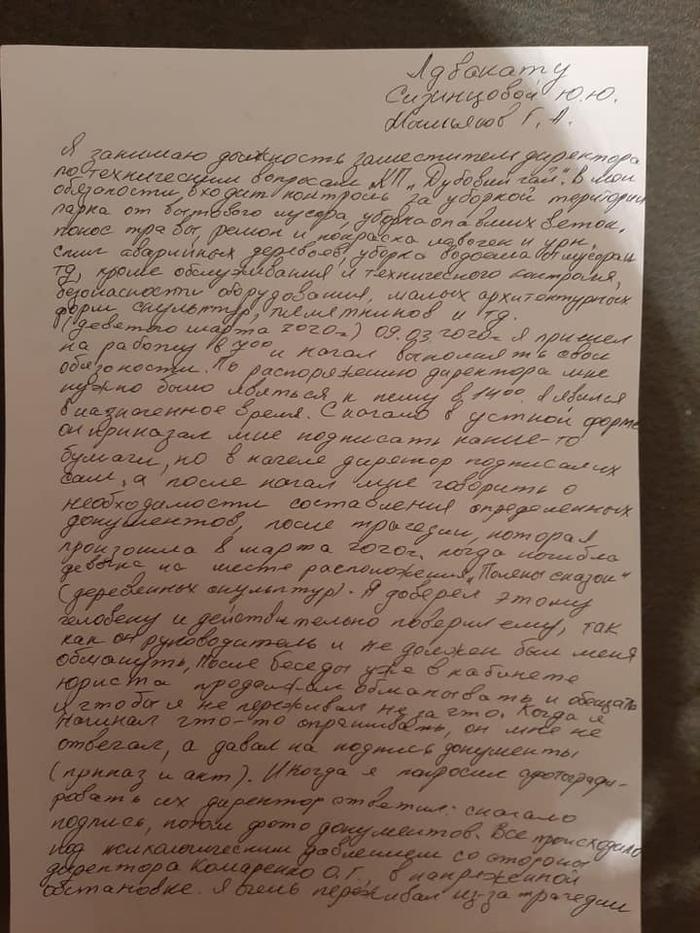 Адвокату
Сизинцовой Ю.Ю.
Г. А.
Я занимаю должность заместителя директора
по техническим вопросам КП „Дубовий гай". В мои
обязоности входит контроль за уборкой територии
парка от бытового мусора, уборка опавших веток,
покос травы, ремон и покраска лавочек и урн,
спил аварийных деревьев, уборка водоема от мусора и
тд, кроме обслуживания и технического контроля,
безопасности оборудования, малых архитектурных
форм скульптур, пямятников и тд.
(девятого марта 2020г) 09.03.2020г я пришел
на работу в 700 и начал выполнять свои
обязоности. По распоряжению директора мне
нужно было явяться к нему в 1400. Я явился
в назначенное время. Сначало в устной форме
он приказал мне подписать какие-то
бумаги, но в начале директор подписал их
сам, а после начал мне говорить о
необходимости составления определенных
документов, после трагедии, которая
произошла 8 марта 2020г. когда погибла
девочка на месте расположения „Поляны сказок"
(деревянных скульптур). Я доверял этому
человеку и действительно поверил ему, так
как он руководитель и не должен был меня
обмануть. После беседы уже в кабинете
юриста продолжал обманывать и обещать
и чтобы я не переживал не за что. Когда я
начинал что-то спрашивать, он мне не
отвечал, а давал на подпись документы
(приказ и акт). И когда я попросил фотографи-
ровать их директор ответил: сначало
подпись, потом фото документов. Все происходило
под психологическим давлением со стороны
директора Комаренко О.Г., в напряженной
обстановке. Я очень переживал из-за трагедии